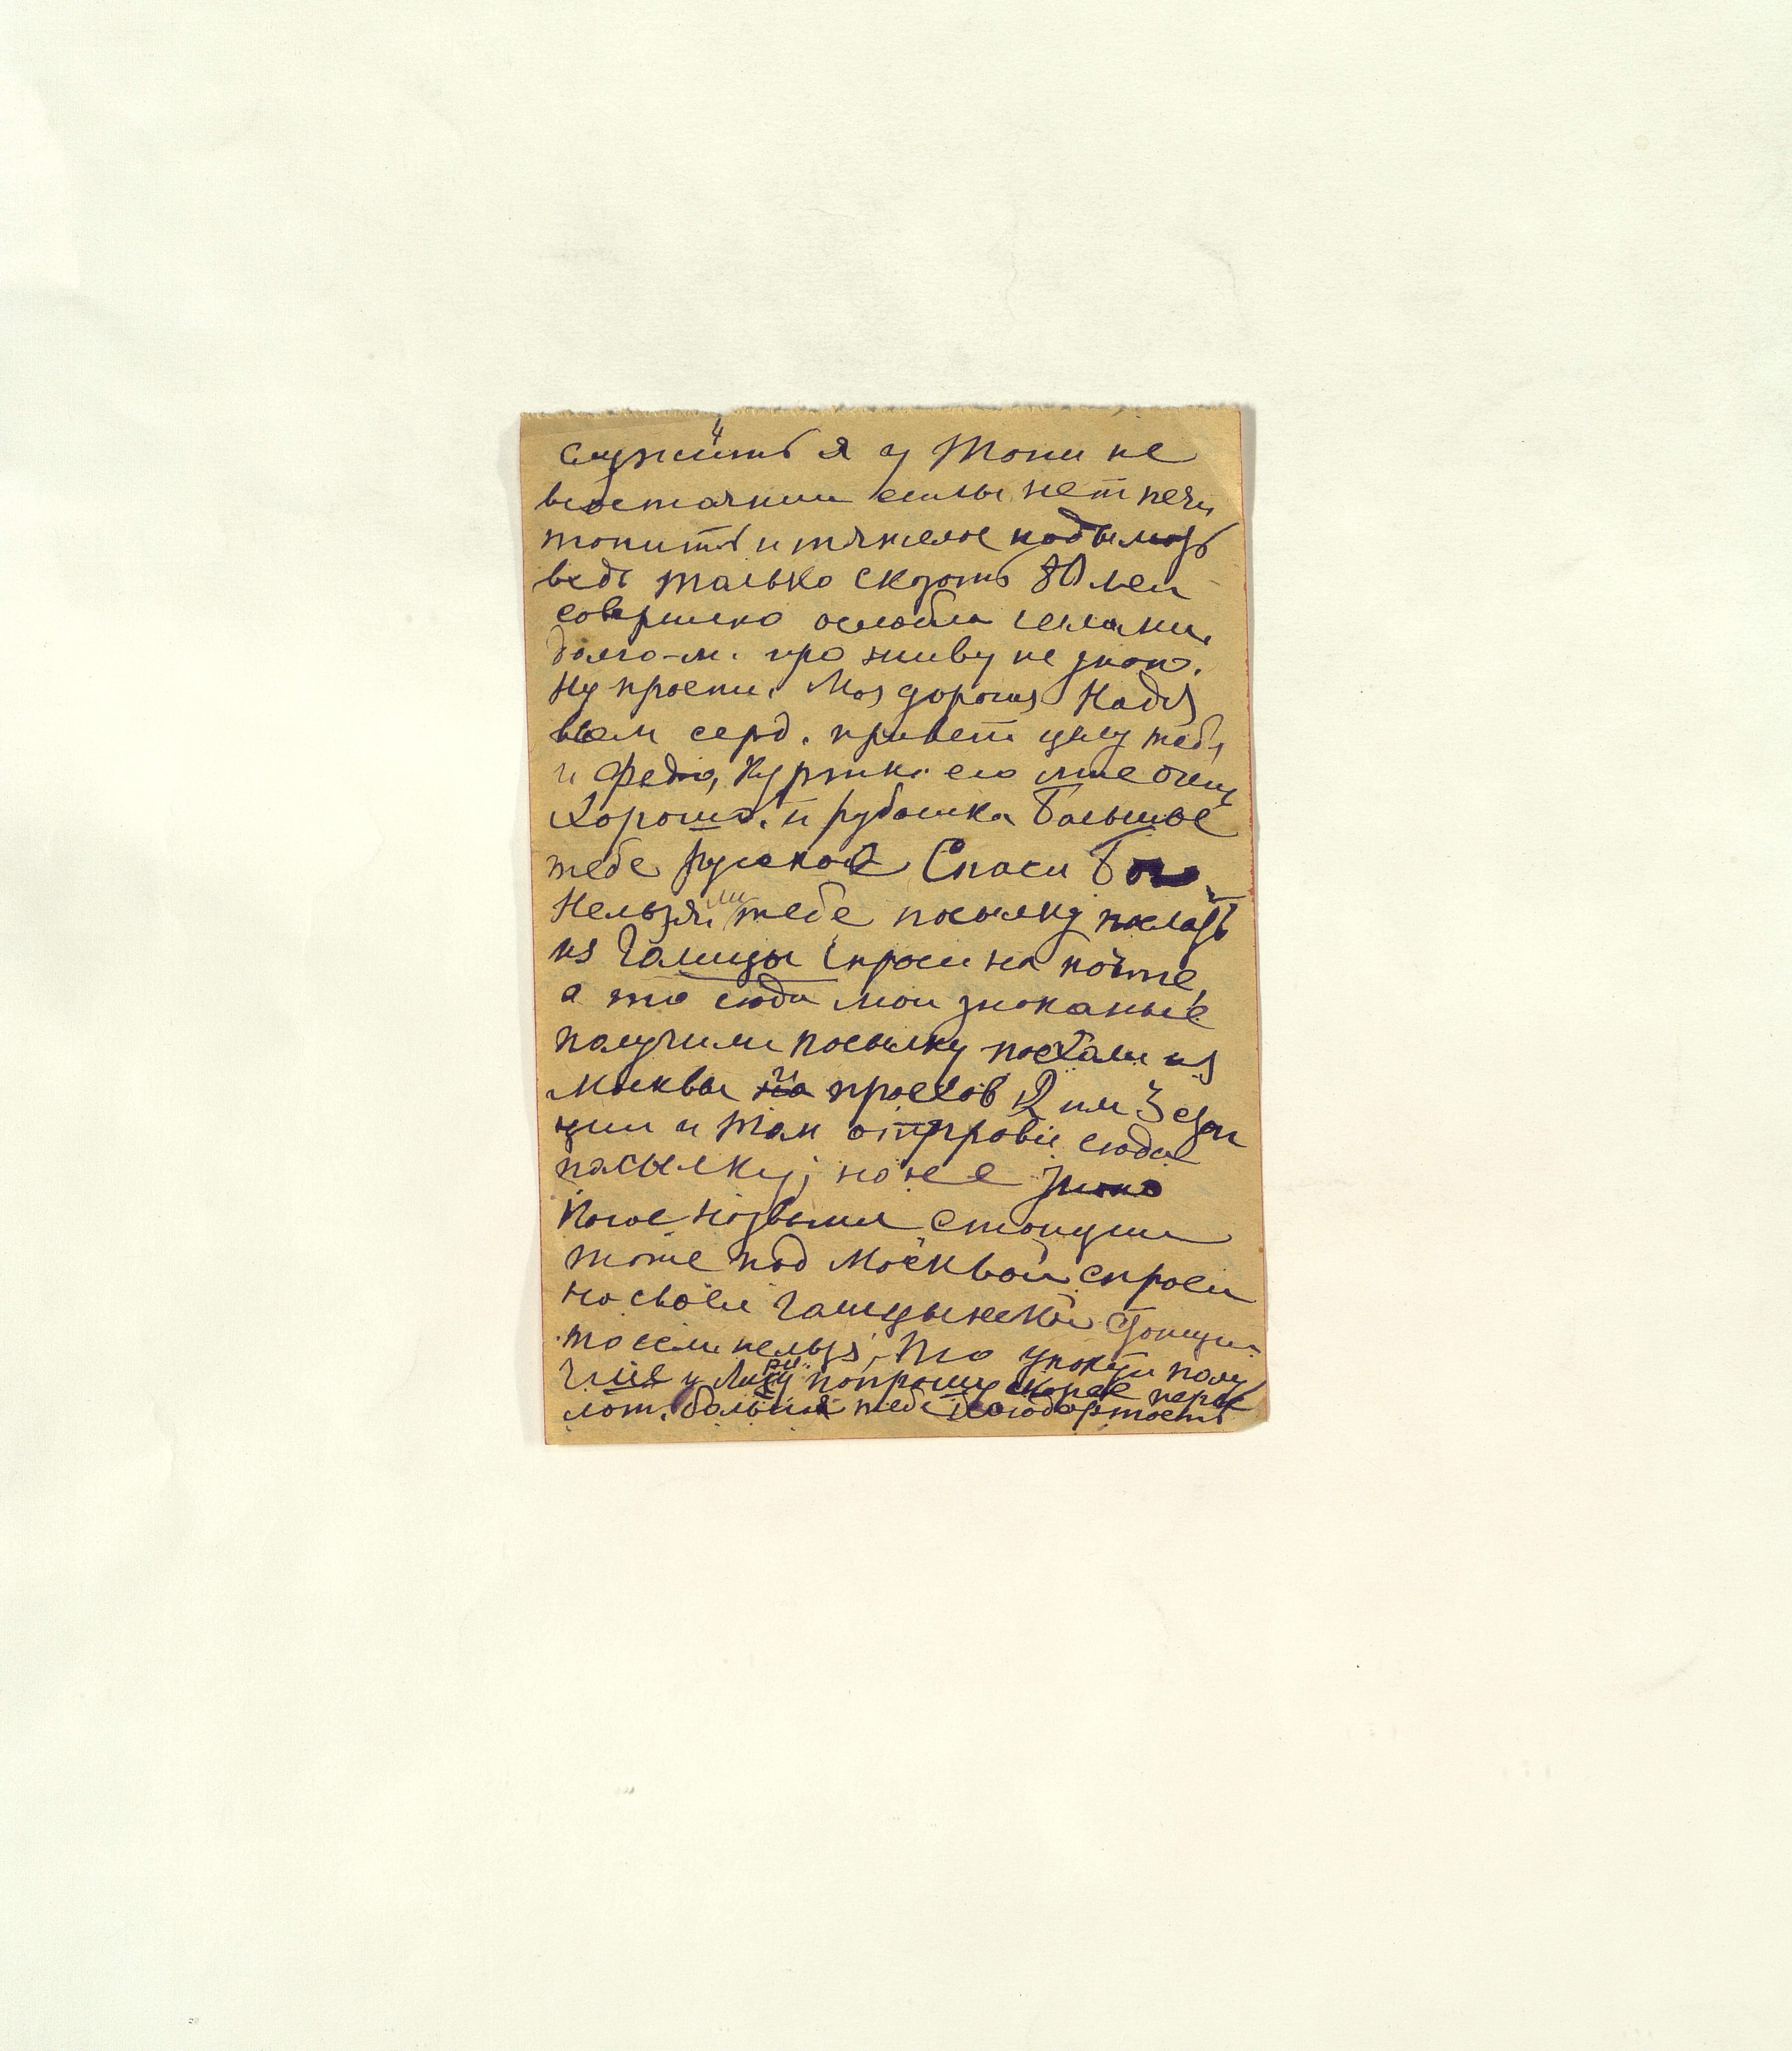 4
служить я у Тони не
в состачнии силы нет печи
топить и тяжелое подымать
ведь только сказать 80 лет
совершено ослабла силами,
долго-ли проживу не знаю.
Ну прости. Моя дорогая Надя
вам серд. привет целу тебя
и Федю, Куртка его мне очень
хороша, и рубашка Большое
тебе русское Спаси Бог
Нельзя ли тебе посылку послать
из Голицы спроси на почте,
а то сюда мои знакомые
получили посылку поехали из
Москвы проехов 2 или 3 стан
ции и там отправил сюда
пасылку, но не знаю
какое названия станции
тоже под Москвой спроси
на своей Галицынской станции
то если нельзя, то
у попрошу скорее
тебе благодарность